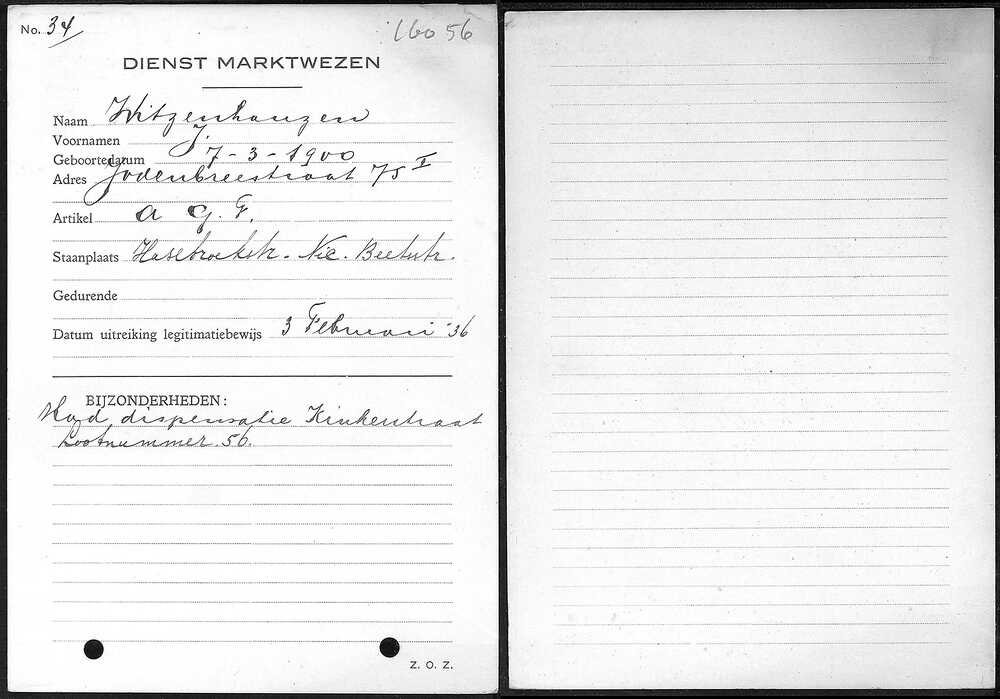 No. 34
16056
DIENST MARKTWEZEN
Naam Witzenhauzen
Voornamen J.
Geboortedatum 7-3-1900
Adres Jodenbreestraat 75 I
Artikel a g. F.
Staanplaats Hasebroekstr. Nic. Beetsstr.
Gedurende
Datum uitreiking legitimatiebewijs 3 Februari '36
BIJZONDERHEDEN:
Had dispensatie Kinkerstraat
Lootnummer 56.
Z. O. Z.